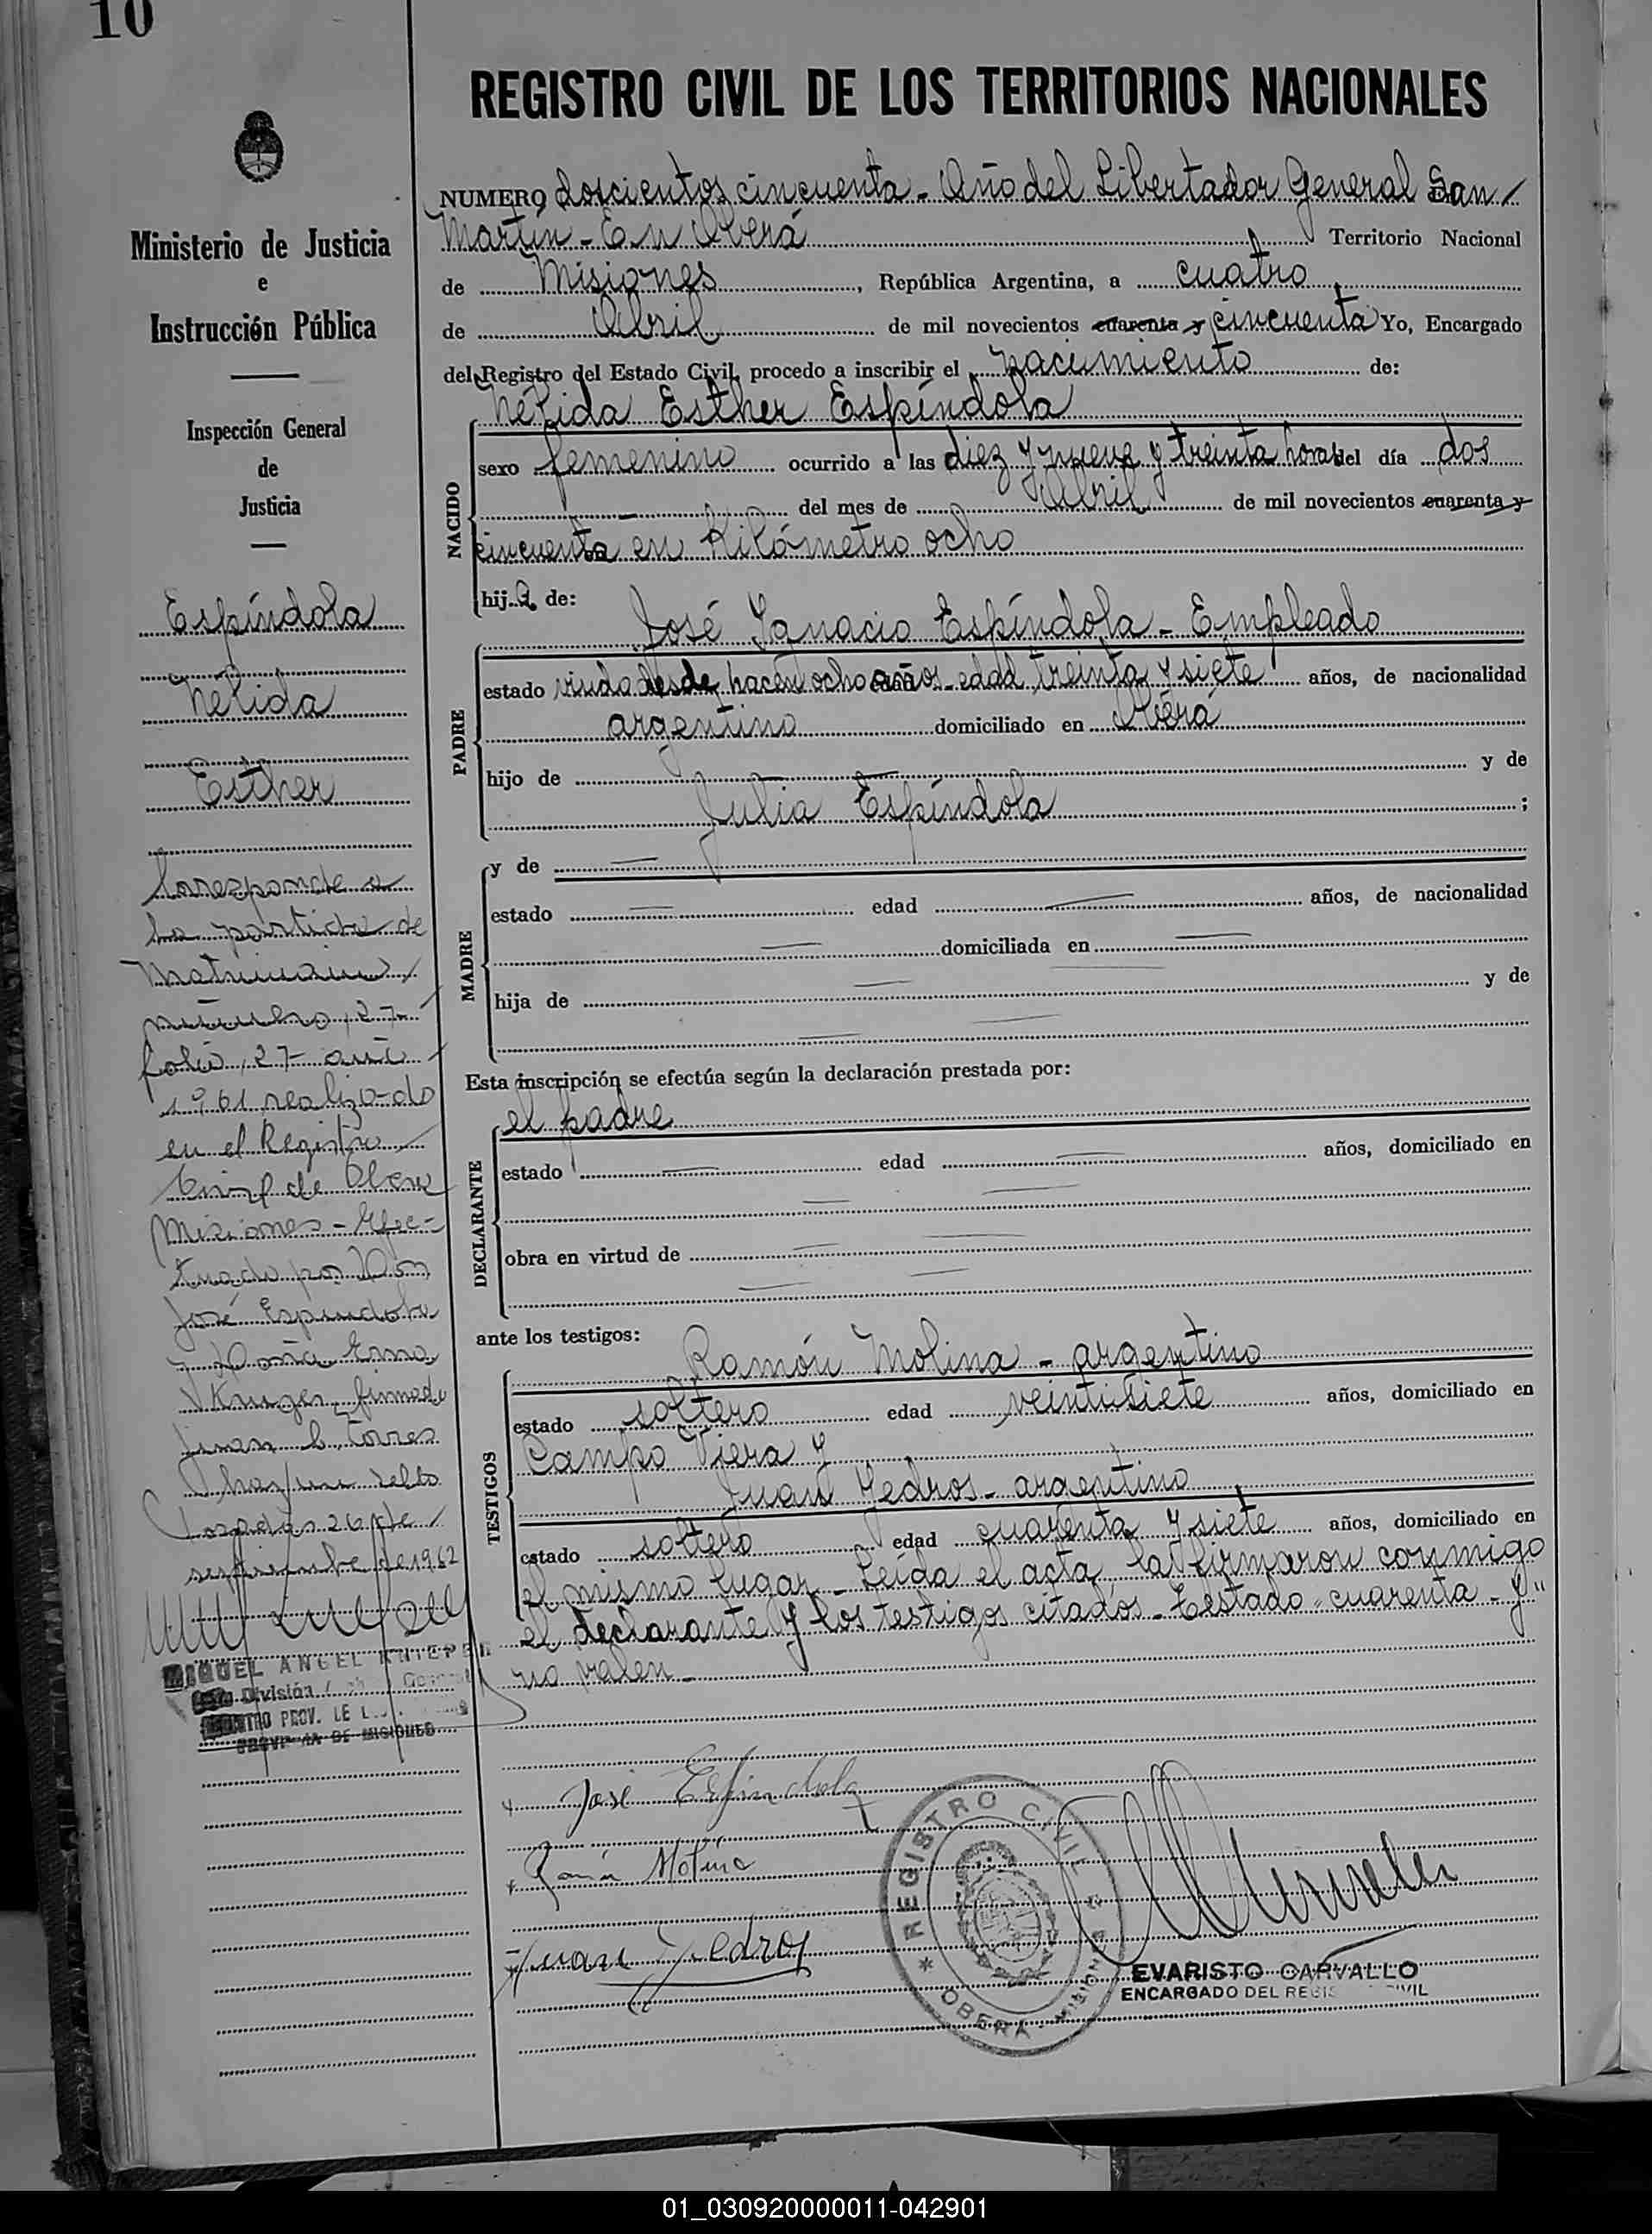 10
REGISTRO CIVIL DE LOS TERRITORIOS NACIONALES
Ministerio de Justicia
e
Instrucción Pública
Inspección General
de
Justicia
Espíndola
Nélida
Esther
Corresponde a
la partida de
Matrimonio
número 27
folio 27 año
1961 realizado
en el Registro
Civil de Oberá
Misiones - Efec-
tuado por Don
José Espindola
y Doña Erna
Kruger, firmado
Juan C. Torres
hay un sello
Posadas 26 de
septiembre de 1962
MIGUEL ANGEL
División
PROV. DE
DE MISIONES
NUMERO doscientos cincuenta - Año del Libertador General San
Martín - En Oberá Territorio Nacional
de Misiones, República Argentina, a cuatro
de Abril de mil novecientos cuarenta y cincuenta Yo, Encargado
del Registro del Estado Civil, procedo a inscribir el nacimiento de:
Nélida Esther Espíndola
NACIDO
sexo femenino ocurrido a las diez y nueve y treinta horas del día dos
del mes de Abril de mil novecientos cuarenta y
cincuenta en Kilómetro ocho
hija de:
José Ignacio Espíndola - Empleado
PADRE
estado viudo desde hacen ocho años - edad treinta y siete años, de nacionalidad
argentino domiciliado en Oberá
hijo de y de
Julia Espíndola ;
MADRE
y de
estado edad años, de nacionalidad
domiciliada en
hija de y de
Esta inscripción se efectúa según la declaración prestada por:
el padre
DECLARANTE
estado edad años, domiciliado en
obra en virtud de
ante los testigos:
Ramón Molina - argentino
TESTIGOS
estado soltero edad veintisiete años, domiciliado en
Campo Viera y
Juan Yedros - argentino
estado soltero edad cuarenta y siete años, domiciliado en
el mismo lugar - Leída el acta la firmaron conmigo
el declarante y los testigos citados - Testado "cuarenta - y"
no valen -
José Espindola
Ramón Molina
Juan Yedros
REGISTRO CIVIL
OBERA - MISIONES
EVARISTO CARVALLO
ENCARGADO DEL REGIS CIVIL
01_030920000011-042901